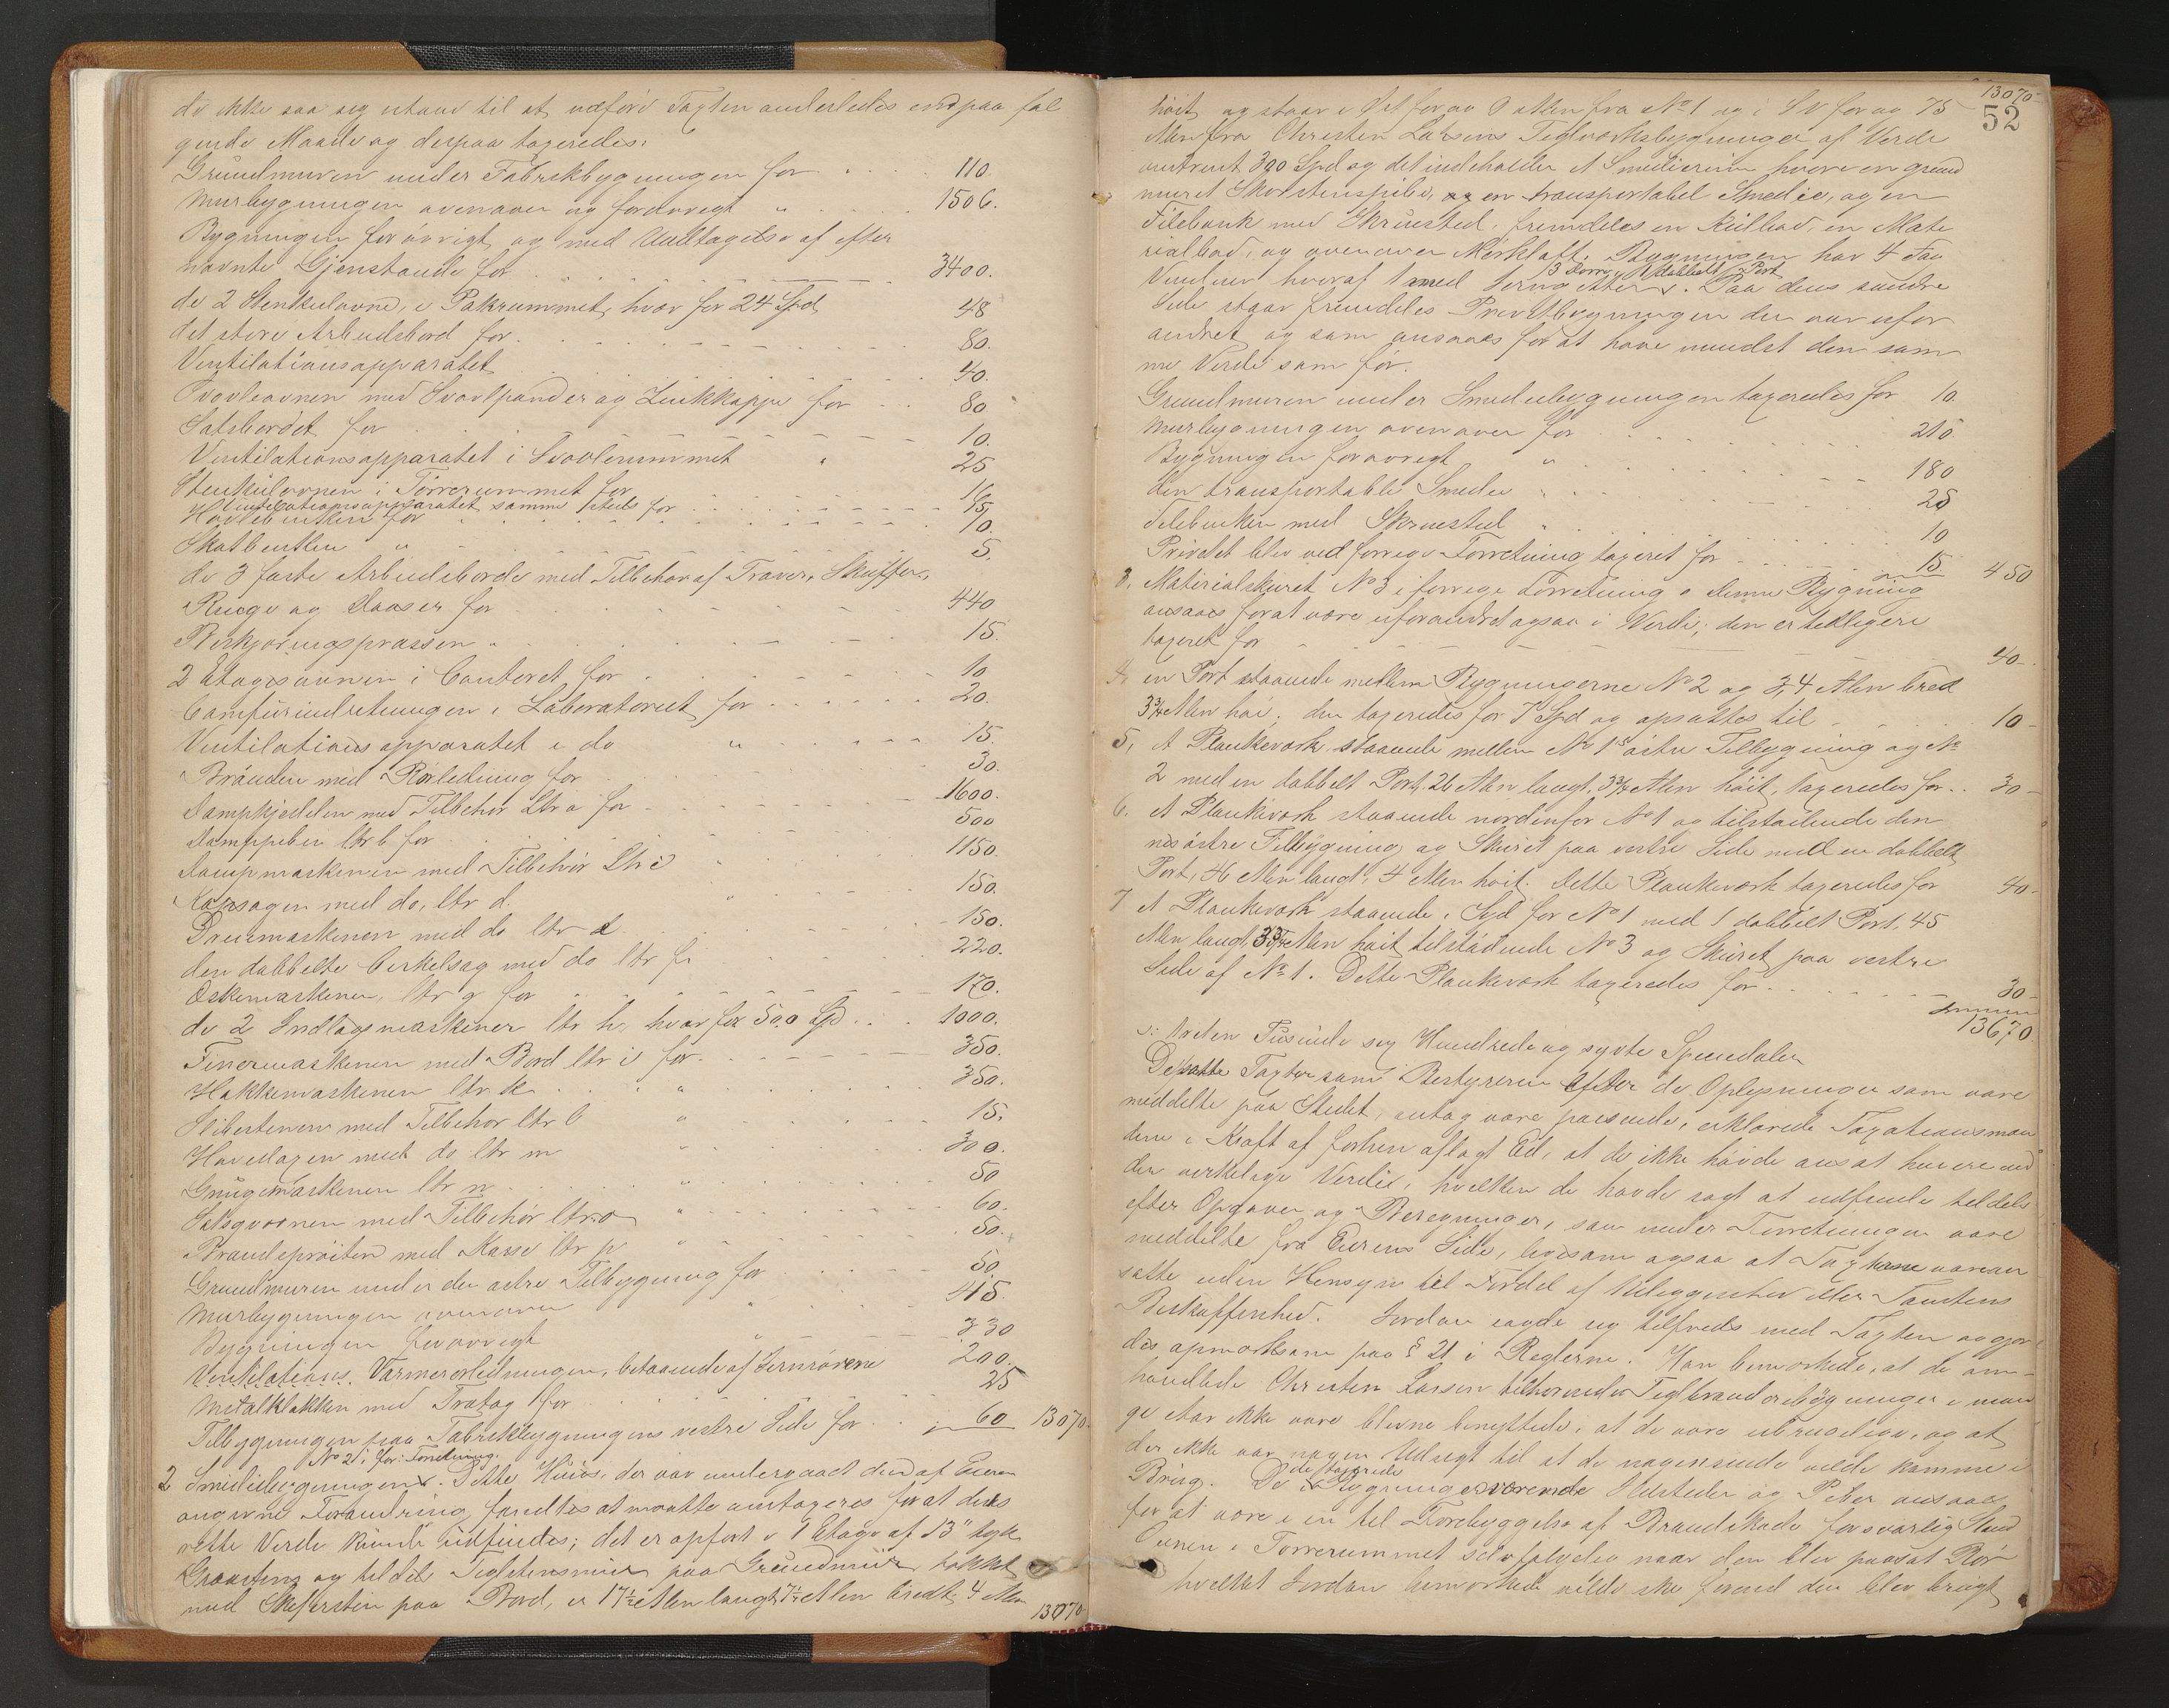 de ikke saa seg istand til at udføre Taxten anderledes end paa føl
gende Maade og derpaa taxeredes:
Grundmuren under Fabrikbygningen for 110.
Murbygningen ovenover og forøvrigt " 1506.
Bygningen forøvrigt og med Undtagelse af efter
nævnte Gjenstande for 3400.
de 2 Stenkulovne, i Pakrummet, hver for 24 Spd 48
det store Arbeidsbord for 80.
Ventilationsapparatet 40.
Svovleovnen med Svovlpander og Zinkkappe for 80
Satsbordet for 10.
Ventilationsapparatet i Svovlerummet " 25
Stenkulovnen i Tørrerummet for 16
Ventilationsapparatet samme Steds for 15
Høvlebænken for 10.
Skatbenken " 5.
de 3 faste Arbeidsborde med Tilbehør af Traver, Skuffer,
Ringe og Daaser for 440
Perkjøringspressen " 15.
2 Etagesovnen i Contoret for 10
Comfurindretningen i Laboratoriet for 20.
Ventilationsapparatet i do " 15.
Brønden med Rørledning for 30.
Dampkjedelen med Tilbehør Ltr a for 1600.
Damppiben ltr b for 500
Dampmaskinen med Tilbehør Ltr c 1150.
Kapsagen med do, ltr d. " 150.
Dreiemaskinen med do ltr e 150.
den dobbelte Cirkelsag med do ltr f 220.
Æskemaskinen, ltr g for 170.
de 2 Indlægsmaskiner ltr h, hver for 500 Spd 1000.
Finermaskinen med Bord ltr i for 350.
Hakkemaskinen ltr k " 350.
Slibestenen med Tilbehør ltr l " 15.
Høvedagen med do ltr m " 300.
Gnugemaskinen ltr n " 50
Satsgvornen med Tilbehør ltr o " 60.
Brandsprøiten med Kasse ltr p " 50.
Grundmuren under den østre Tilbygning for 50
Murbygningen ovenover " 415.
Bygningen forøvrigt " 330
Ventilations. Varmerørledningen, bestaaende af Jernrørene 200.
Metalklokken med Tratag for 25
Tilbygningen paa Fabrikbygningens vestre Side for 60 13070.
No 2 i for: Forretning.
2 Smediebygningen. Dette Huus, der var undergaaet den af Eieren
angivne Forandring, fandtes at maatte omtaxeres for at dets
rette Verdi kunde udfindes; det er opført i 1 Etage af 13" tyk
Graasten og tildels Teglstensmuur paa Grundmuur, tækket
med Skifersten paa Bord, er 17½ Alen langt, 7½ Alen bredt, 4 Alen
13070
13070
52
høit og staar i Øst for og 9 Alen fra No 1 og i SV for og 75
Alen fra Christen Larsens Teglværksbygninger af Verdi
omtrent 300 Spd og det indeholder et Smedierum hvori en grund
muret Skorstenspibe, og en transportabel Smedie, og en
Filebænk med Skruested, fremdeles en Kulbod, en Mate
rialbod, og ovenover Mørkloft. Bygningen har 4 Fag
3 Døre, 1 dobbelt Port
Vinduer hvoraf 1 med Jerngitter. Paa dens søndre
Side staar fremdeles Privetbygningen der var ufor
andret og som ansaaes for at have mindst den sam
me Verdi som før.
Grundmuren under Smediebygningen taxeredes for 10.
Murbygningen ovenover for 210.
Bygningen forøvrigt " 180
den transportable Smedie " 25
Filebænken med Skruested " 10
Privetet blev ved forrige Forretning taxeret for 15 450
3. Materialskuret No 3 i forrige Forretning. Denne Bygning
ansaaes for at være uforandret ogsaa i Verdi; den er tidligere
taxeret for 40.
4. en Port staaende mellem Bygningerne No 2 og 3, 4 Alen bred
3¾ Alen høi; den taxeredes for 7 Spd og opsattes til 10
5. et Plankeværk staaende mellem No 1s østre Tilbygning og No
2 med en dobbelt Port, 26 Alen langt, 3¾ Alen høit, taxeredes for 30
6. et Plankeværk staaende nordenfor No 1 og tilstødende den
nes østre Tilbygning og Skuret paa vestre Side med en dobbelt
Port, 46 Alen langt, 4 Alen høit. Dette Plankeværk taxeredes for 40
7 et Plankeværk staaende i Syd for No 1 med 1 dobbelt Port, 45
Alen langt, 3¾ Alen høit tilstødende No 3 og Skuret paa vestre
Side af No 1. Dette Plankeværk taxeredes for 30
Summa
13670
o: tretten Tusinde sex Hundrede og sytti Speciedaler
Desatte Taxter som Bestyreren efter de Oplysninger som vare
meddelte paa Stedet, antog være passende, erklærede Taxationsmæn
dene i Kraft af forhen aflagt Ed, at de ikke havde ansat høiere end
den virkelige Verdi, hvilken de havde søgt at udfinde tildels
efter Opgaver og Beregninger, som under Forretningen vare
meddelte fra Eierens Side, ligesom ogsaa at Taxterne vare an
satte uden Hensyn til Fordel af Beliggenhed eller Tomtens
Beskaffenhed. Jordan sagde sig tilfreds med Taxten og gjor
des opmærksom paa § 21 i Reglerne. Han bemærkede, at de om-
handlede Christen Larsen tilhørende Teglbrænderibygninger i man
ge Aar ikke vare blevne benyttede, at de vare ubrugelige, og at
der ikke var nogen Udsigt til at de nogensinde vilde komme i
Brug. De i de taxerede Bygninger værende Ildsteder og Piber ansaaes
for at være i en til Forebyggelse af Brandskade forsvarlig Stand
Ovnen i Tørrerummet selvfølgelig naar den blev paasat Rør
hvilket Jordan bemærkede vilde ske førend den blev brugt